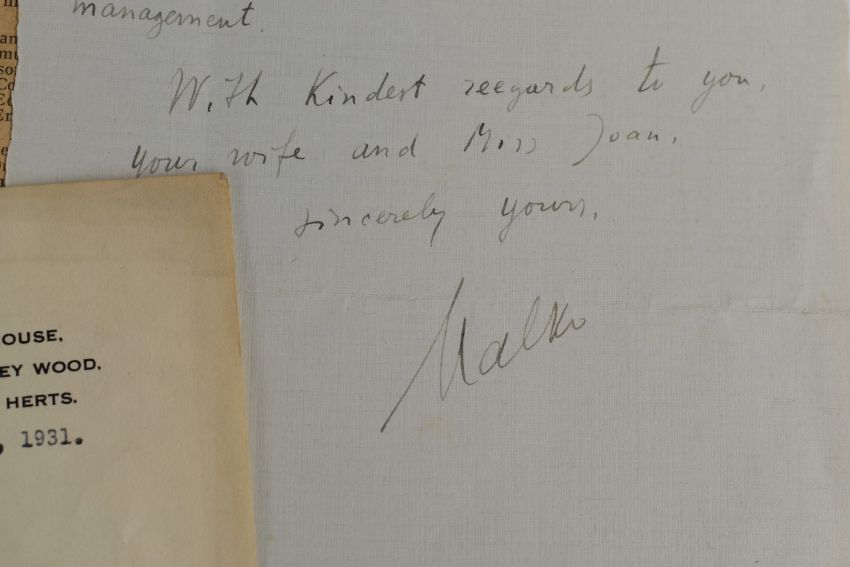 management.
With Kindest reegards to you,
your wife and Miss Joan.
sincerely yours,
Malko
OUSE,
EY WOOD,
HERTS.
, 1931.